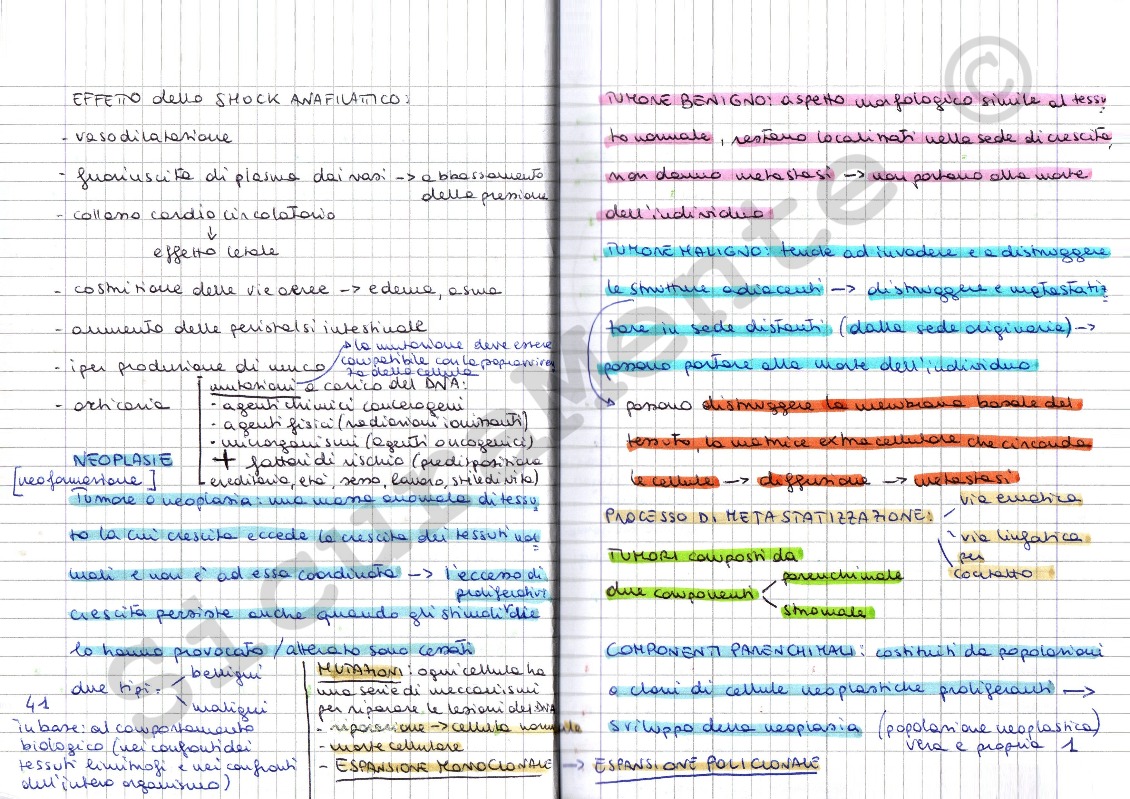 EFFETTO dello SHOCK ANAFILATTICO:
- vasodilatazione
- fuoriuscita di plasma dai vasi → abbassamento
della pressione
- collasso cardiocircolatorio
↓
effetto letale
- costrizione delle vie aeree → edema, asma
- aumento delle peristalsi intestinale
- iper produzione di muco
- orticaria
→ la mutazione deve essere
compatibile con la sopravviven
za della cellula
mutazioni a carico del DNA:
- agenti chimici cancerogeni
- agenti fisici (radiazioni ionizzanti)
- microrganismi (agenti oncogenici)
+ fattori di rischio (predisposizione
ereditaria, età, sesso, lavoro, stile di vita)
NEOPLASIE
[neoformazione]
Tumore o neoplasia: una massa anomala di tessu
to la cui crescita eccede la crescita dei tessuti nor
mali e non è ad essa coordinata → l'eccesso di
proliferativi
crescita persiste anche quando gli stimoli che
lo hanno provocato/alterato sono cessati
due tipi:
benigni
maligni
in base: al comportamento
biologico (nei confronti dei
tessuti limitrofi e nei confronti
dell'intero organismo)
41
MUTAZIONI: ogni cellula ha
una serie di meccanismi
per riparare le lesioni del DNA
- riparazione → cellula normale
- morte cellulare
- ESPANSIONE MONOCLONALE → ESPANSIONE POLICLONALE
TUMORE BENIGNO: aspetto morfologico simile al tessu
to normale, restano localizzati nella sede di crescita,
non danno metastasi → non portano alla morte
dell'individuo
TUMORE MALIGNO: tende ad invadere e a distruggere
le strutture adiacenti → distruggere e metastatiz
zare in sede distanti (dalla sede originaria) →
possono portare alla morte dell'individuo
possono distruggere la membrana basale del
tessuto, la matrice extracellulare che circonda
le cellule → diffusione → metastasi
PROCESSO DI METASTATIZZAZIONE:
via ematica
via linfatica
per
contatto
TUMORI composti da
due componenti
parenchimale
stromale
COMPONENTI PARENCHIMALI: costituiti da popolazioni
o cloni di cellule neoplastiche proliferanti →
sviluppo della neoplasia (popolazione neoplastica)
vera e propria 1
©
SicuraMente